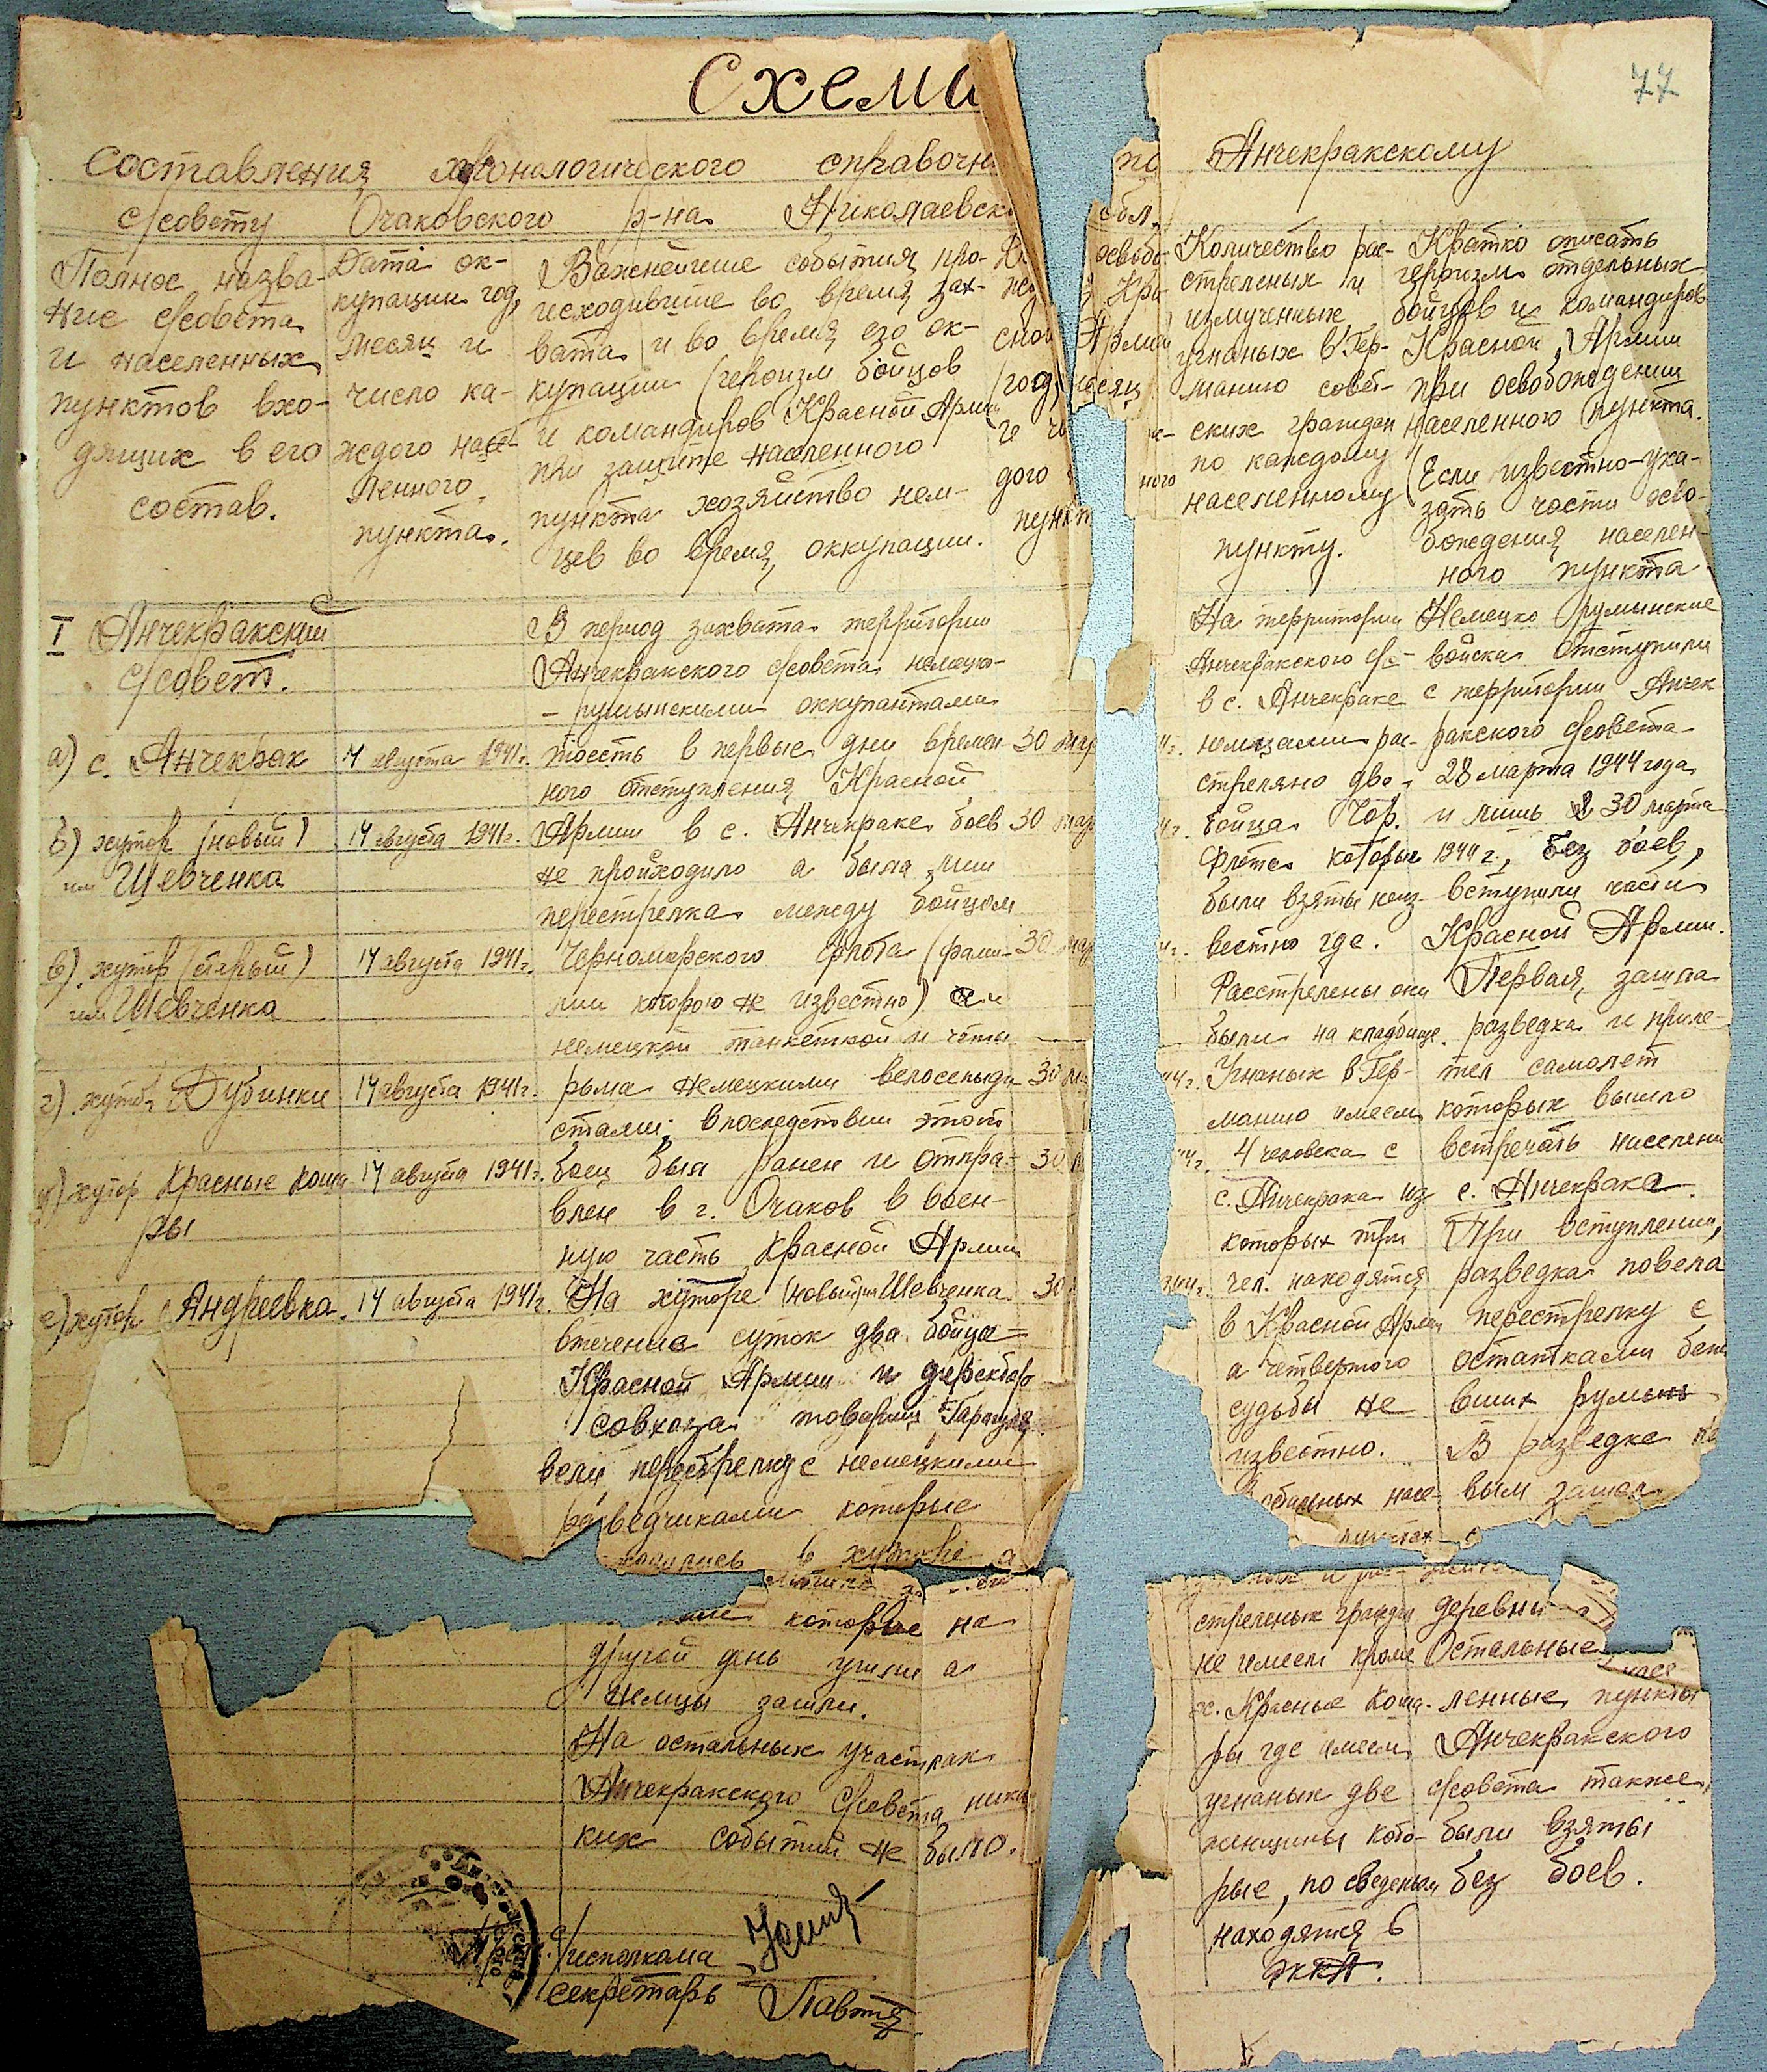 77
Схема
Составления хронологического справочн по Анчекракскому
с/совету Очаковского р-на Николаевск обл.
Полное назва-
ние с/совета
и населенных
пунктов вхо-
дящих в его
состав.
Дата ок-
купации год,
месяц и
число ка-
ждого насе-
ленного
пункта.
Важнейшие события, про-
исходившие во время зах-
вата и во время его ок-
купации (героизм бойцов
и командиров Красной Армии
при защите населенного
пункта хозяйство нем-
цев во время оккупации.
освобо-
Кра-
сной Армии
(год, месяц
и
дого ного
пункт
Количество рас-
стреленых и
измученных
угнаных в Гер-
манию совет-
ских граждан
по каждому
населенному
пункту.
Кратко описать
героизм отдельных
бойцов и командиров
Красной Армии
при освобождении
населенного пункта.
(Если известно-ука-
зать части осво-
бождения населен-
ного пункта
I Анчекракский
с/совет.
а) с. Анчекрак
14 августа 1941г.
30 мар
б) хутор (новый)
им Шевченка
14 августа 1941г.
30 мар
в) хутор (старый)
им Шевченка
14 августа 1941г.
30 мар
г) хутор Дубинки
14 августа 1941г.
30 ма
д) хутор Красные Коша
ры
14 августа 1941г.
30
е) хутор Андреевка.
14 августа 1941г.
30
В период захвата территории
Анчекракского с/совета немецко-
- румынскими оккупантами
тоесть в первые дни времен
ного отступления Красной
Армии в с. Анчекраке боев
не происходило а была лиш
перестрелка между бойцом
Черноморского флота (фами-
лии которого не известно) и
немецкой танкеткой и четы
рьма немецкими велосепыди
стами, впоследствии этот
боец был ранен и отпра-
влен в г. Очаков в воен-
ную часть Красной Армии
На хуторе (новый им Шевченка
втечение суток два бойца
Красной Армии и директор
совхоза товарищ
вели перестрелку с немецкими
разведчиками которые
в хуторе а
которые на
другой день ушли а
немцы зашли.
На остальных участках
Анчекракского с/совета ника
ких событий не было.
На территории
Анчекракского с/с-
в с. Анчекраке
немцами рас-
стреляно два
бойца Чор.
флота которые
были взяты неиз-
вестно где.
Расстрелены они
были на кладбище.
Угнаных в Гер-
манию имеем
4 человека с
с. Анчекрака из
которых три
чел. находятся
в Красной Армии
а четвертого
судьбы не
известно.
насе-
пунктах
стреленых граждан
не имеем кроме
х. Красные Коша-
ры где имеем
угнаных две
женщины кото-
рые, по сведеньям
находятся в
РККА.
Немецко румынские
войска отступили
с территории Анчек
ракского с/совета
28 марта 1944 года
и лишь 30 марта
1944 г., без боев,
вступили части
Красной Армии.
Первая, зашла
разведка и приле-
тел самолет
которых вышло
встречать населени
с. Анчекрака.
При вступлении,
разведка повела
перестрелку с
остатками бежа
вших румын
В разведке пе
вым зашел
деревни
Остальные
насе-
ленные пункты
Анчекракского
с/совета также
были взяты
без боев.
с/исполкома
секретарь